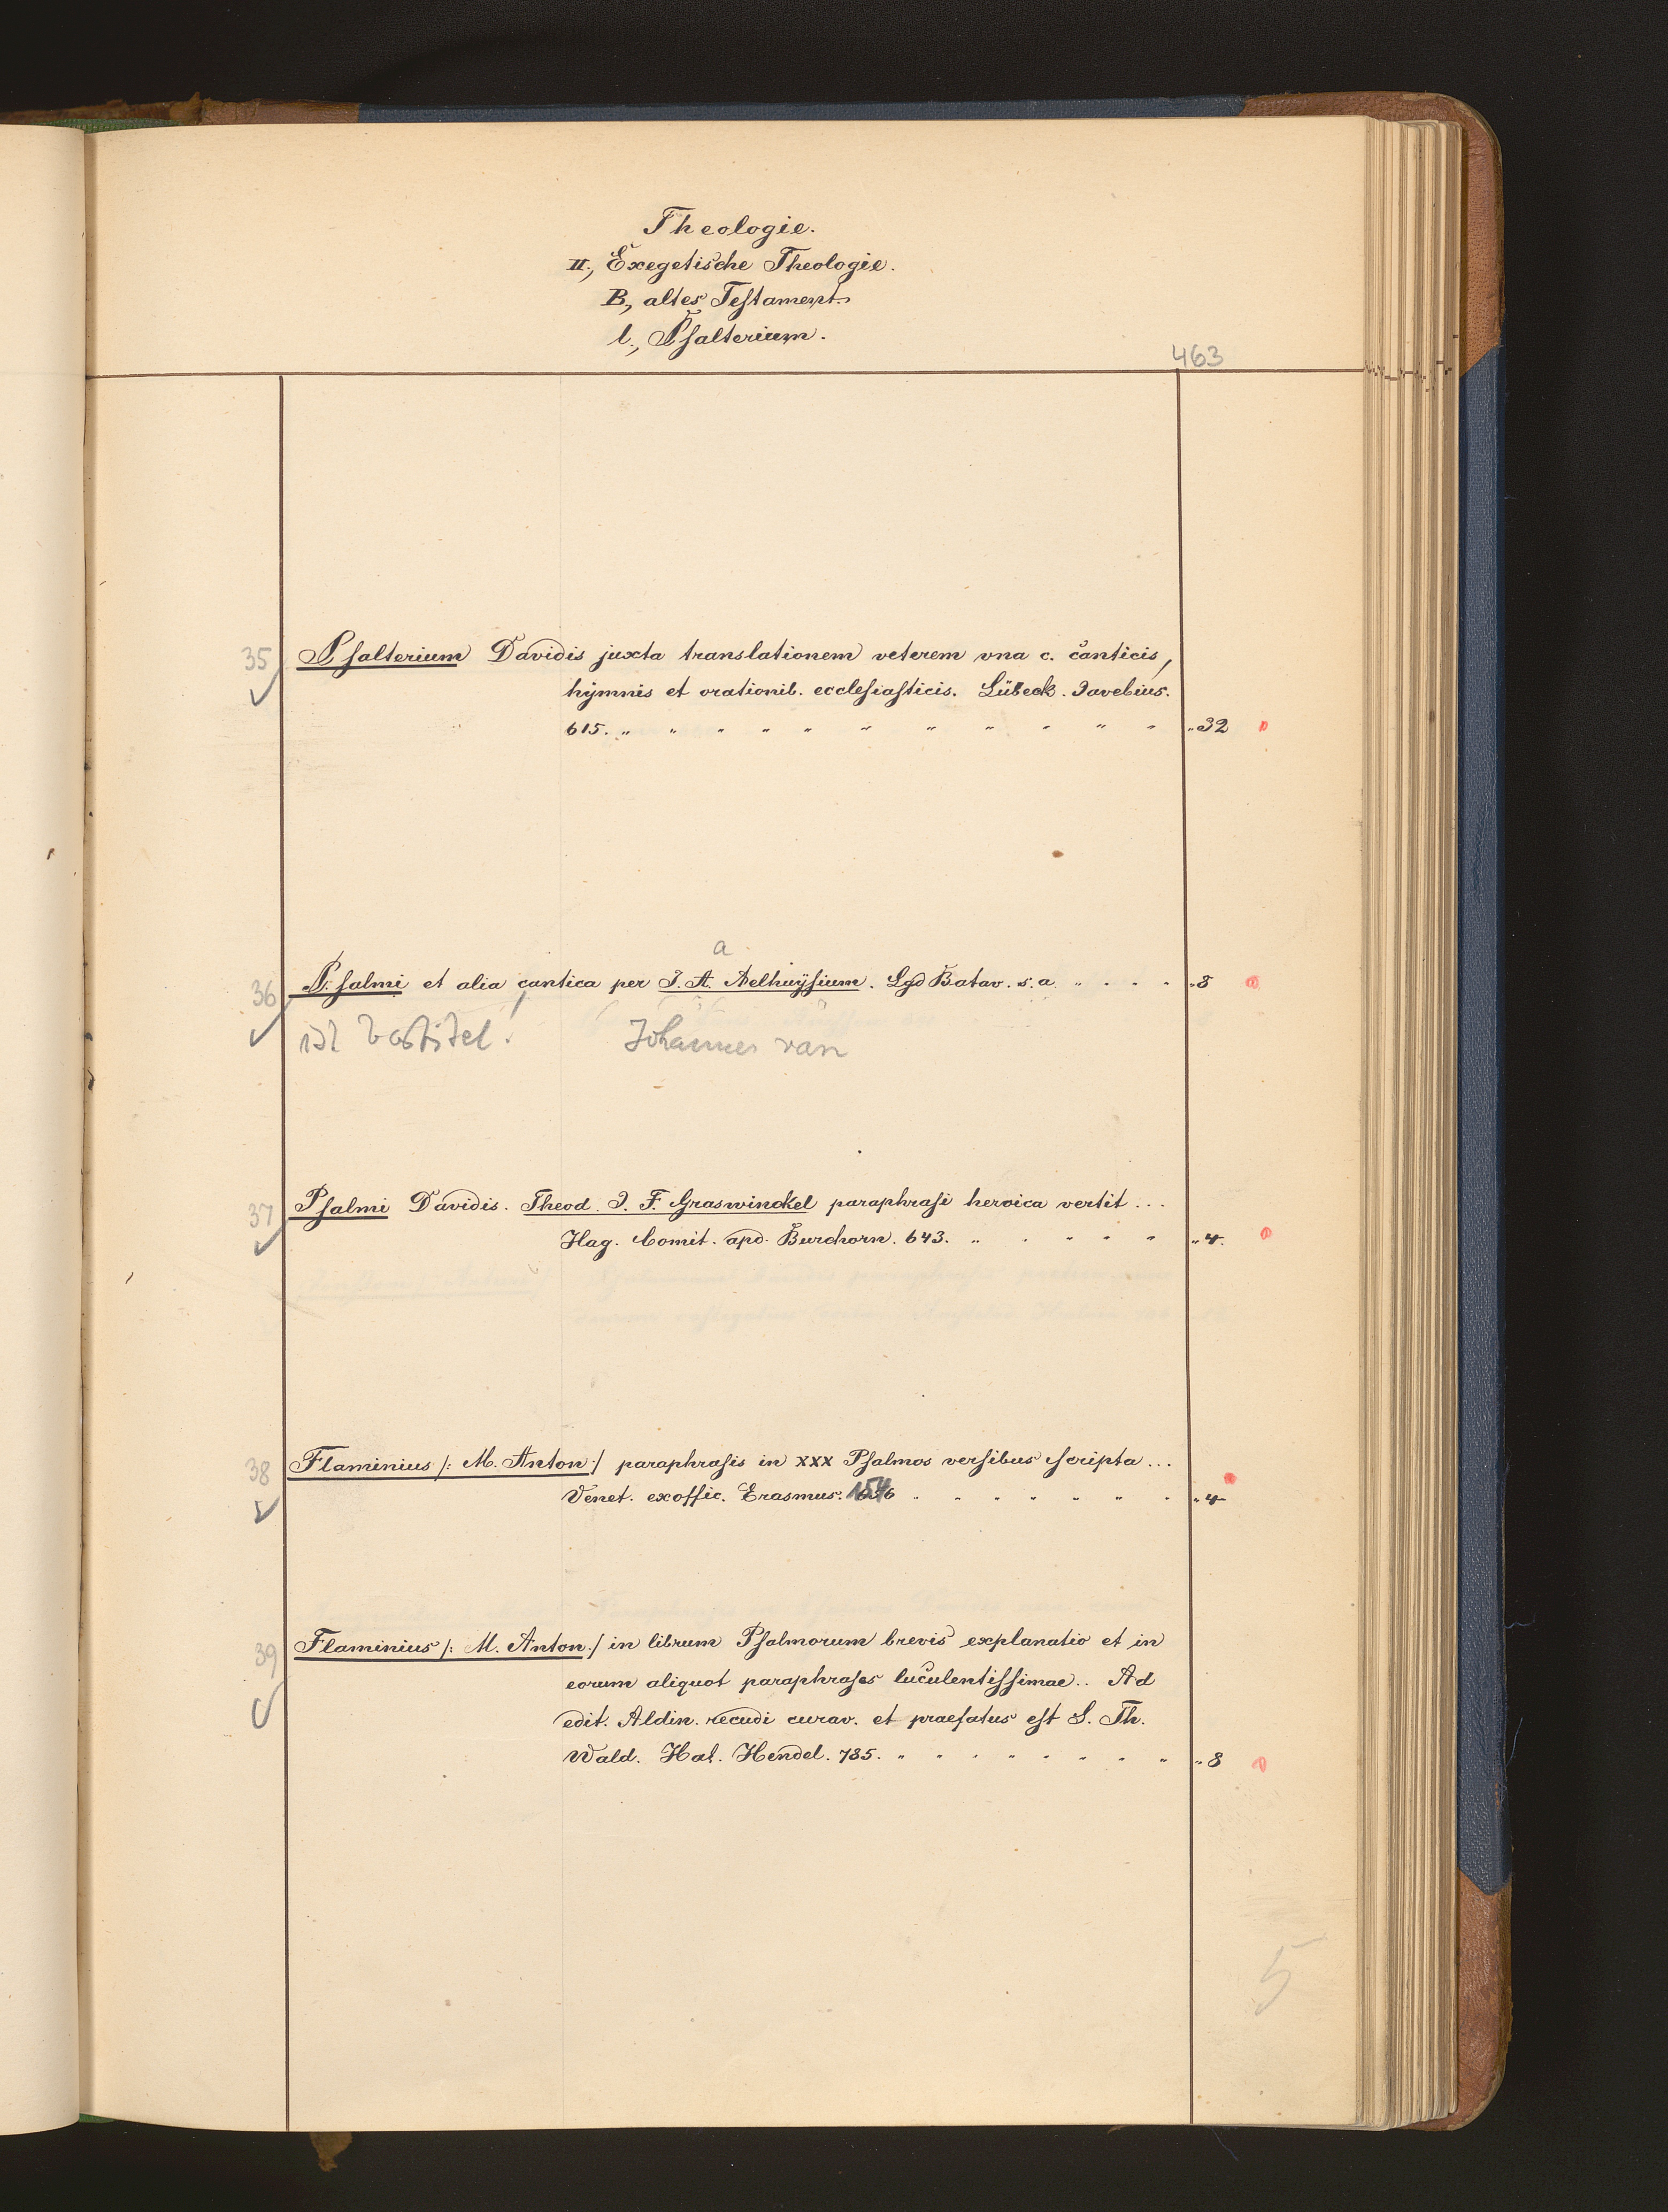 Theologie.
II., Exegetische Theologie.
B., altes Testament.
l., Psalterium.
463
35 Psalterium Davidis juxta translationem veterem vna c. canticis,
hymnis et orationib. ecclesiasticis. Lübeck. Javebius.
615. „ „ „ „ „ „ „ „ „ „ „ „ 32
a
36 Psalmi et alia cantica per J. A. Aelhuÿsium. Lgd Batav. s. a. „ „ „ „ „ 8
ist Vortitel! Johannes van
37 Psalmi Davidis. Theod. J. F. Graswinckel paraphrasi heroica vertit ...
Hag. Comit. apd. Burchorn. 643. „ „ „ „ „ „ 4.
38 Flaminius /: M. Anton :/ paraphrasis in xxx Psalmos versibus scripta ...
Venet. ex offic. Erasmus. 1546 „ „ „ „ „ „ „ „ 4
39 Flaminius /: M. Anton :/ in librum Psalmorum brevis explanatio et in
eorum aliquot paraphrases luculentissimae .. Ad
edit. Aldin. recudi curav. et praefatus est S. Th.
Wald. Hal. Hendel. 785. „ „ „ „ „ „ „ „ „ 8
5